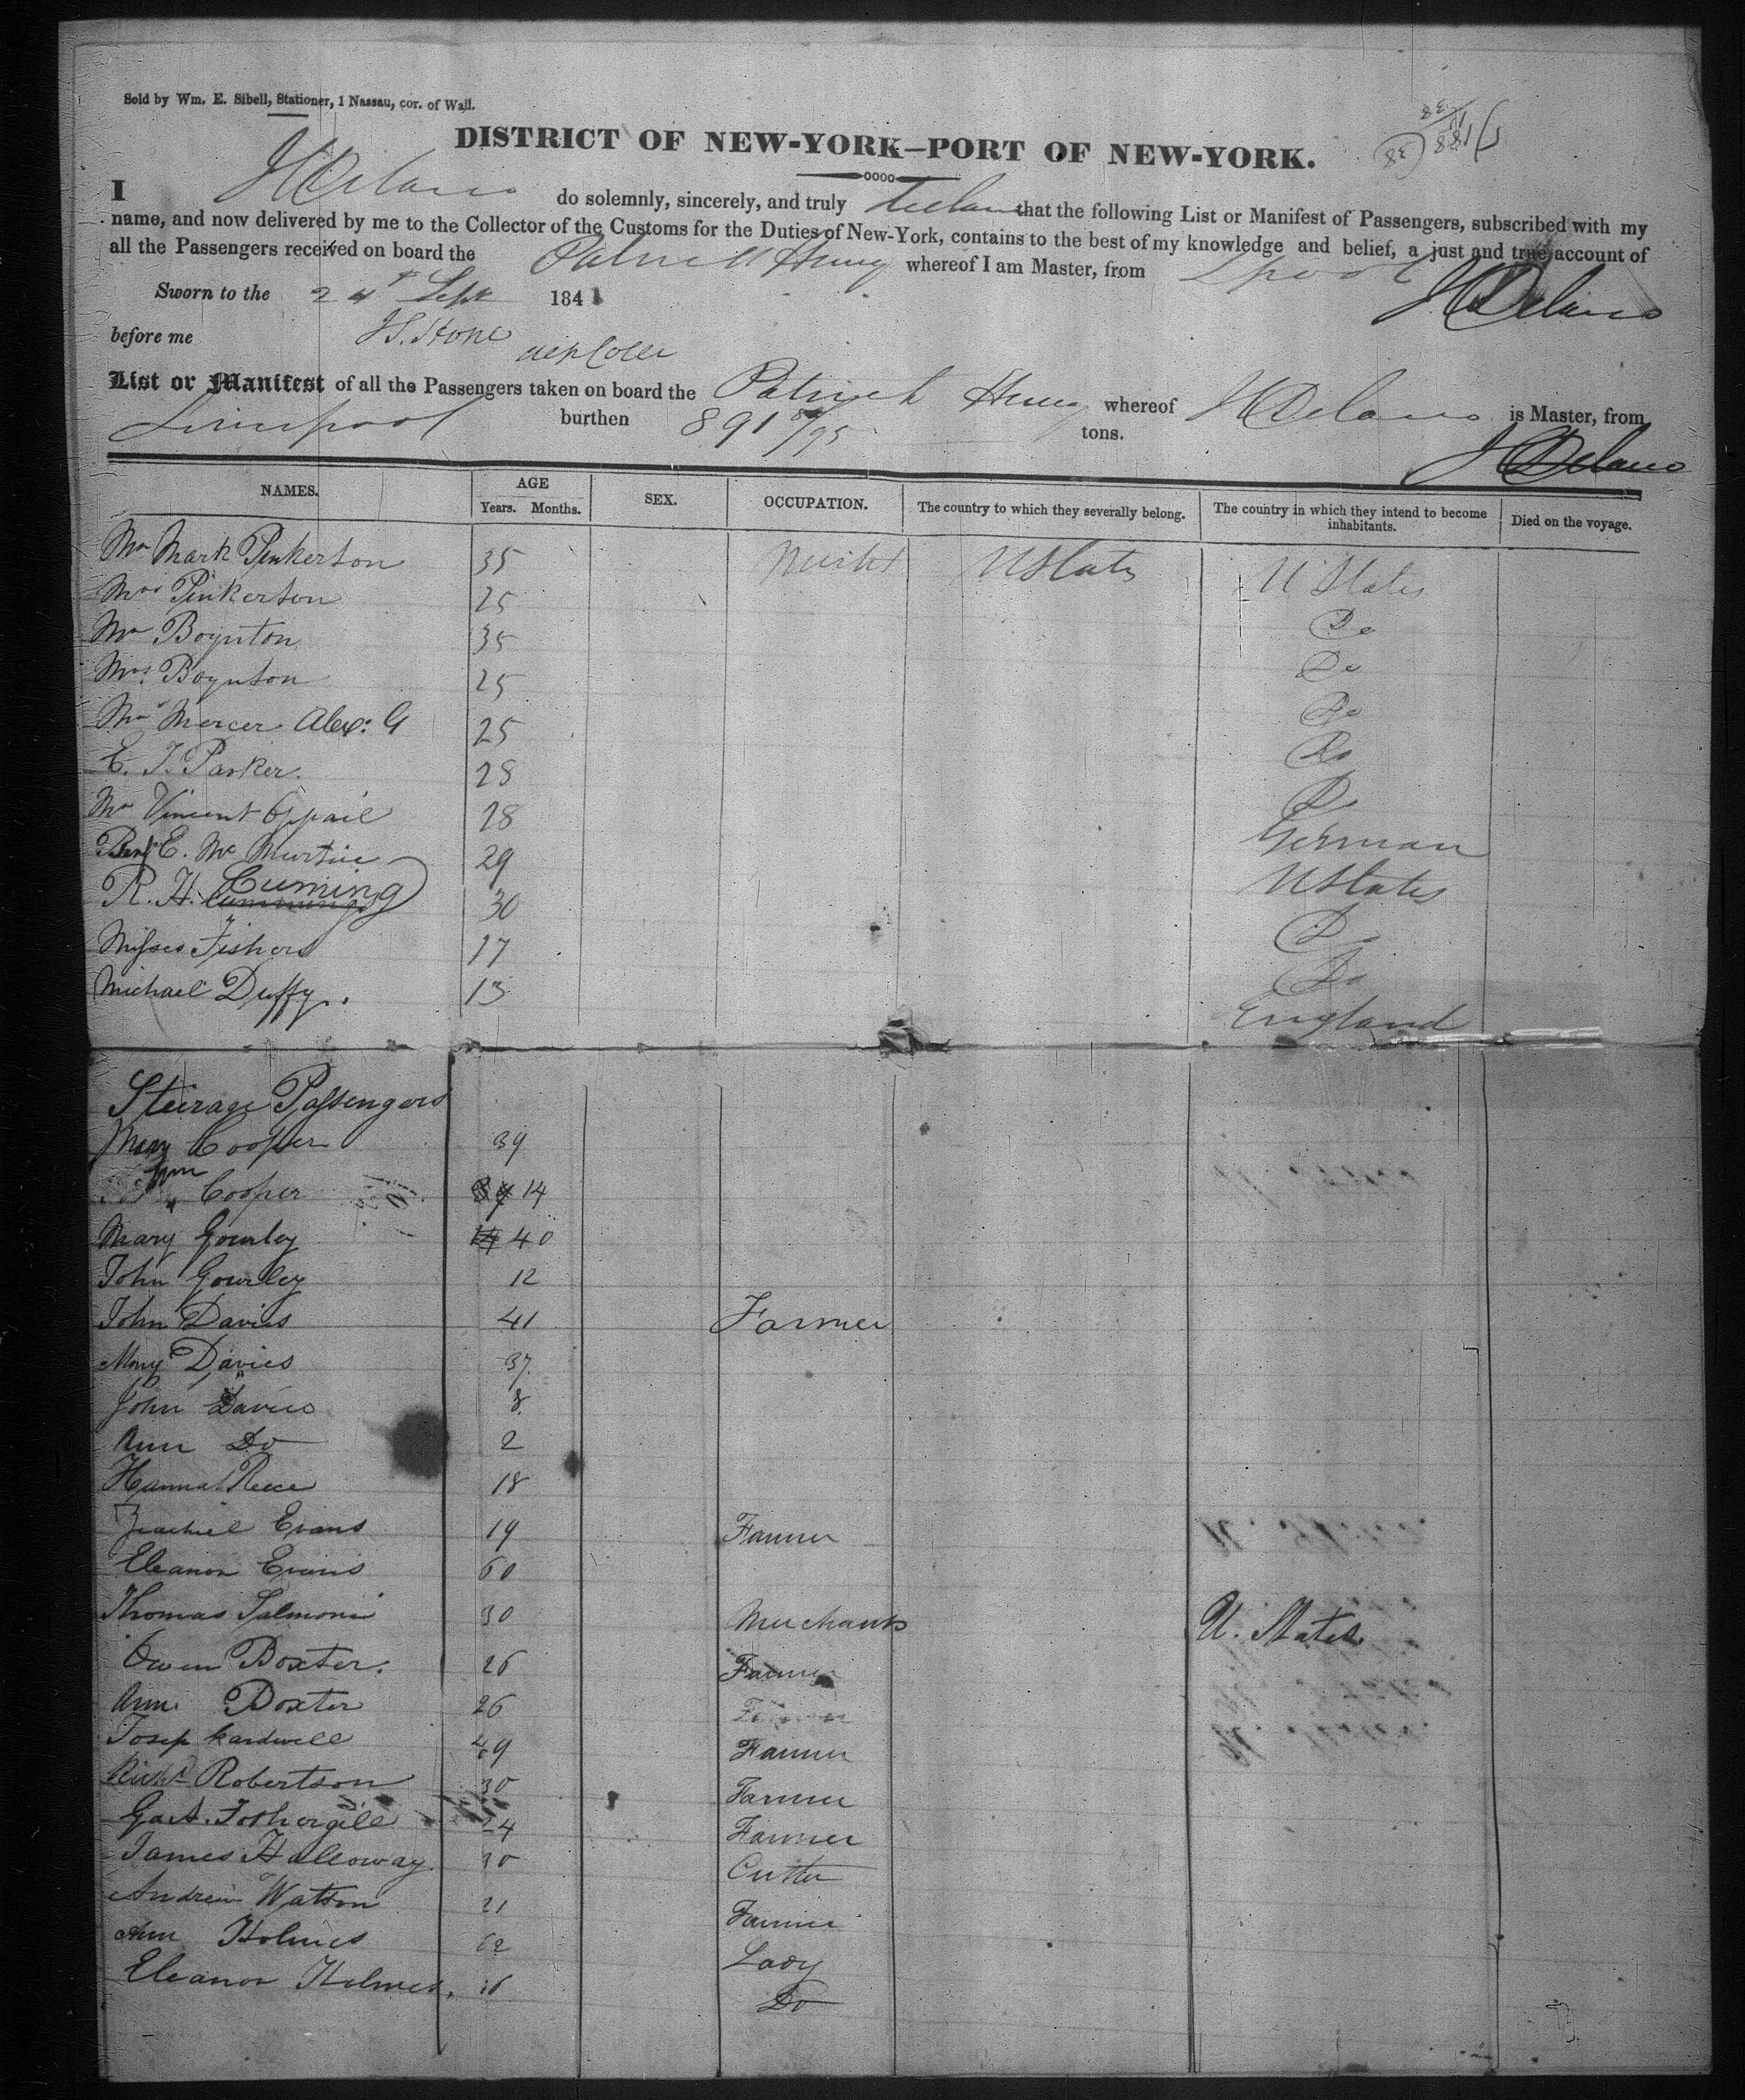 Sold by Wm. E. Sibell, Stationer, 1 Nassau, cor. of Wall.
DISTRICT OF NEW-YORK—PORT OF NEW-YORK.
I J C Delano do solemnly, sincerely, and truly that the following List or Manifest of Passengers, subscribed with my
name, and now delivered by me to the Collector of the Customs for the Duties of New-York, contains to the best of my knowledge and belief, a just and true account of
all the Passengers received on board the Patrick Henry whereof I am Master, from Lpool
J C Delano
Sworn to the 24th Sept 184
before me J.S. Hone
Dep Coller
List or Manifest of all the Passengers taken on board the Patrick Henry whereof J C Delano is Master, from
Liverpool burthen 891 /95 tons.
J C Delano
NAMES. AGE SEX. OCCUPATION. The country to which they severally belong. The country in which they intend to become inhabitants. Died on the voyage.
Years. Months.
Mr Mark Pinkerton 35 Mercht U States U States
Mrs Pinkerton 25 Do
Mr Boynton 35 Do
Mrs. Boynton 25 Do
Mr Mercer Alex: G 25 Do
E. T. Parker. 28 Do
Mr Vincent 28 German
E. Mc Murtrie 29 U States
R. H. Cummings Cuming 30 Do
Misses Fishers 17 Do
Michael Duffy. 13 England
Steerage Passengers
Mary Cooper 39
Wm Cooper 39 14
Mary Gourley 14 40
John Gourley 12
John Davies 41 Farmer
Mary Davies 37
John Davies 8
Ann Do 2
Hannah Reece 18
Evans 19 Farmer
Eleanor Evans 60
Thomas Salmoni 30 Merchant U. States
Owen Boxter. 26 Farmer
Ann Boxter 26
Josep Kardwell 49 Farmer
Richd Robertson 30 Farmer
Fothergill 24 Farmer
James Halloway 30 Cutter
Andrew Watson 21 Farmer
Ann Holmes 62 Lady
Eleanor Holmes. 16 Do